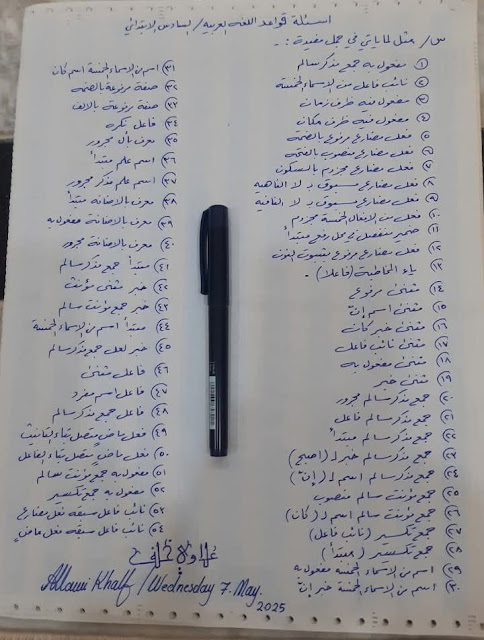 اسئلة قواعد اللغه العربيه / السادس الابتدائي
س/ مثل لما ياتي في جمل مفيدة :ـ
١ مفعول به جمع مذكر سالم
٢ نائب فاعل من الاسماء الخمسة
٣ مفعول فيه ظرف زمان
٤ مفعول فيه ظرف مكان
٥ فعل مضارع مرفوع بالضمة
٦ فعل مضارع منصوب بالفتحة
٧ فعل مضارع مجزوم بالسكون
٨ فعل مضارع مسبوق بـ لا الناهية
٩ فعل مضارع مسبوق بـ لا النافية
١٠ فعل من الافعال الخمسة مجزوم
١١ ضمير منفصل في محل رفع مبتدأ
١٢ فعل مضارع مرفوع بثبوت النون
١٣ ياء المخاطبة (فاعلا) .
١٤ مثنى مرفوع
١٥ مثنى اسم إنّ
١٦ مثنى خبر كان
١٧ مثنى نائب فاعل
١٨ مثنى مفعول به
١٩ مثنى خبر
٢٠ جمع مذكر سالم مجرور
٢١ جمع مذكر سالم فاعل
٢٢ جمع مذكر سالم مبتدأ
٢٣ جمع مذكر سالم خبر لـ (اصبح)
٢٤ جمع مذكر سالم اسم لـ (إنّ)
٢٥ جمع مؤنث سالم منصوب
٢٦ جمع مؤنث سالم اسم لـ (كان)
٢٧ جمع تكسير (نائب فاعل)
٢٨ جمع تكسير (مبتدأ)
٢٩ اسم من الاسماء الخمسة مفعول به
٣٠ اسم من الاسماء الخمسة خبر إنّ
٣١ اسم من الاسماء الخمسة اسم كان
٣٢ صفة مرفوعة بالضمه
٣٣ صفة مرفوعة بالالف
٣٤ فاعل نكره
٣٥ معرف بأل مجرور
٣٦ اسم علم مبتدأ
٣٧ اسم علم مذكر مجرور
٣٨ معرف بالاضافة مبتدأ
٣٩ معرف بالاضافة مفعول به
٤٠ معرف بالاضافة مجرور
٤١ مبتدأ جمع مذكر سالم
٤٢ خبر مثنى مؤنث
٤٣ خبر جمع مؤنث سالم
٤٤ مبتدأ اسم من الاسماء الخمسة
٤٥ خبر لعل جمع مذكر سالم
٤٦ فاعل مثنى
٤٧ فاعل اسم مفرد
٤٨ فاعل جمع مذكر سالم
٤٩ فعل ماضٍ متصل بتاء التانيث
٥٠ فعل ماضٍ متصل بتاء الفاعل
٥١ مفعول به جمع مؤنث سالم
٥٢ مفعول به جمع تكسير
٥٣ نائب فاعل سبقه فعل مضارع
٥٤ نائب فاعل سبقه فعل ماضٍ
Allawi Khalf / Wednesday 7. May.
2025